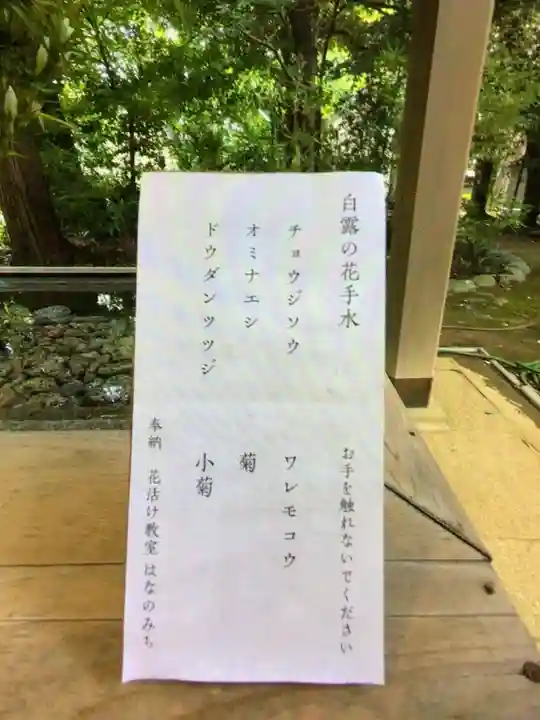 白露の花手水
お手を触れないでください
チョウジソウ
ワレモコウ
オミナエシ
菊
ドウダンツツジ
小菊
奉納 花活け教室 はなのみち